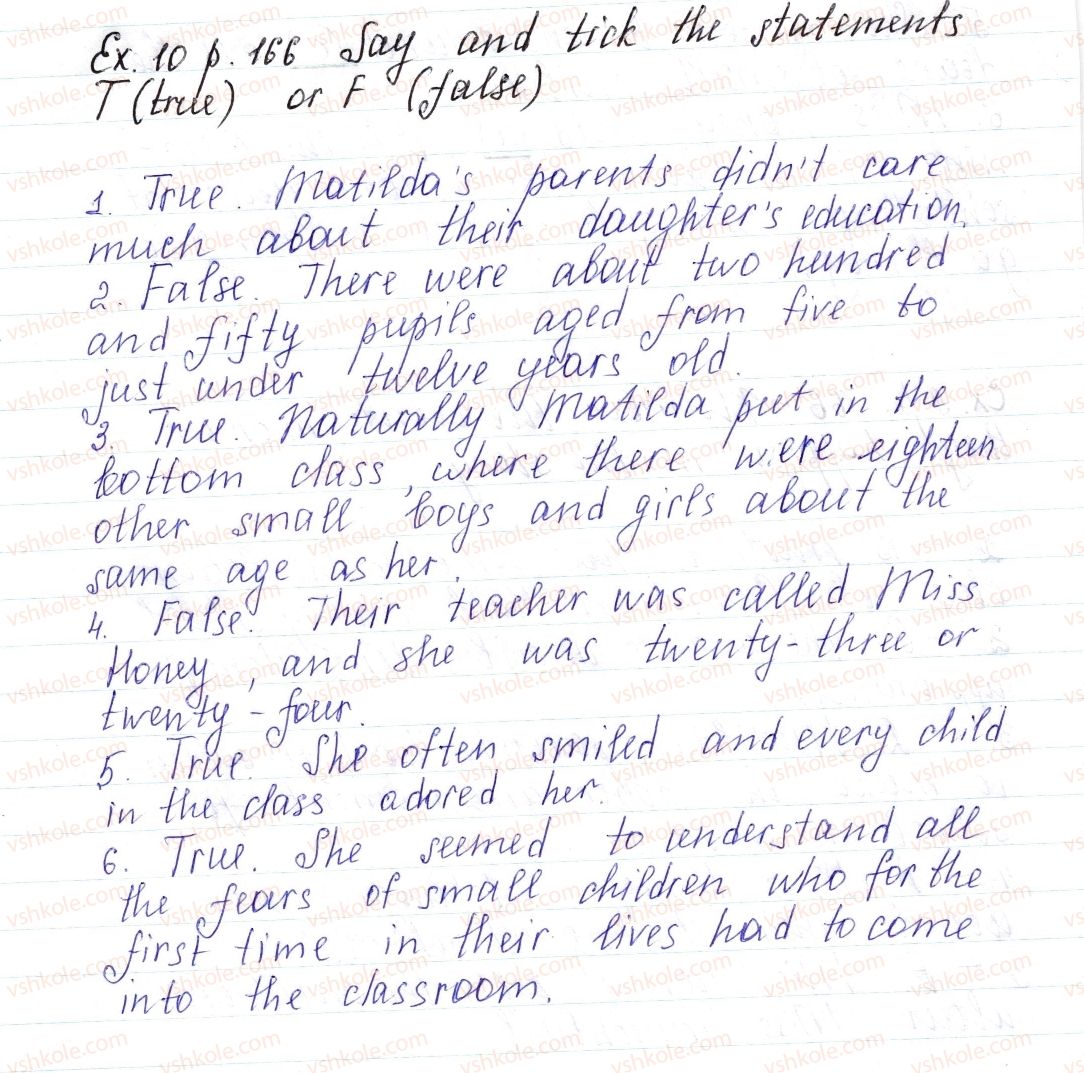 Ex. 10 p. 166 Say and tick the statements
T (true) or F (false)
1. True. Matilda's parents didn't care
much about their daughter's education.
2. False. There were about two hundred
and fifty pupils aged from five to
just under twelve years old.
3. True. Naturally Matilda put in the
bottom class, where there were eighteen
other small boys and girls about the
same age as her.
4. False. Their teacher was called Miss
Honey, and she was twenty-three or
twenty-four.
5. True. She often smiled and every child
in the class adored her.
6. True. She seemed to understand all
the fears of small children who for the
first time in their lives had to come
into the classroom.